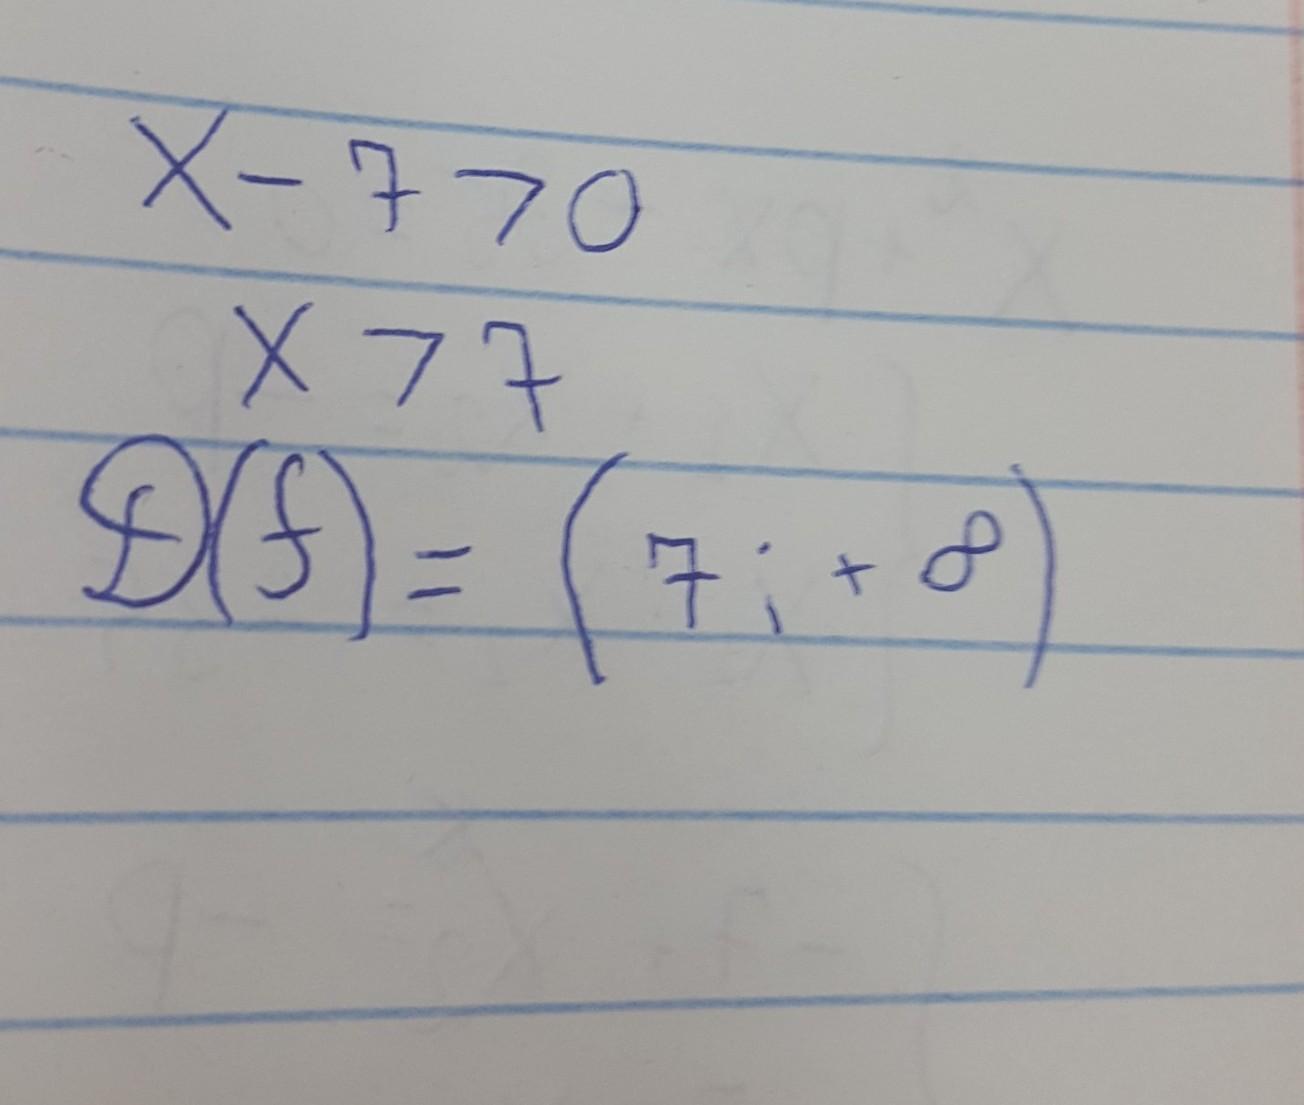 x - 7 > 0
x > 7
D(f) = (7; + ∞)